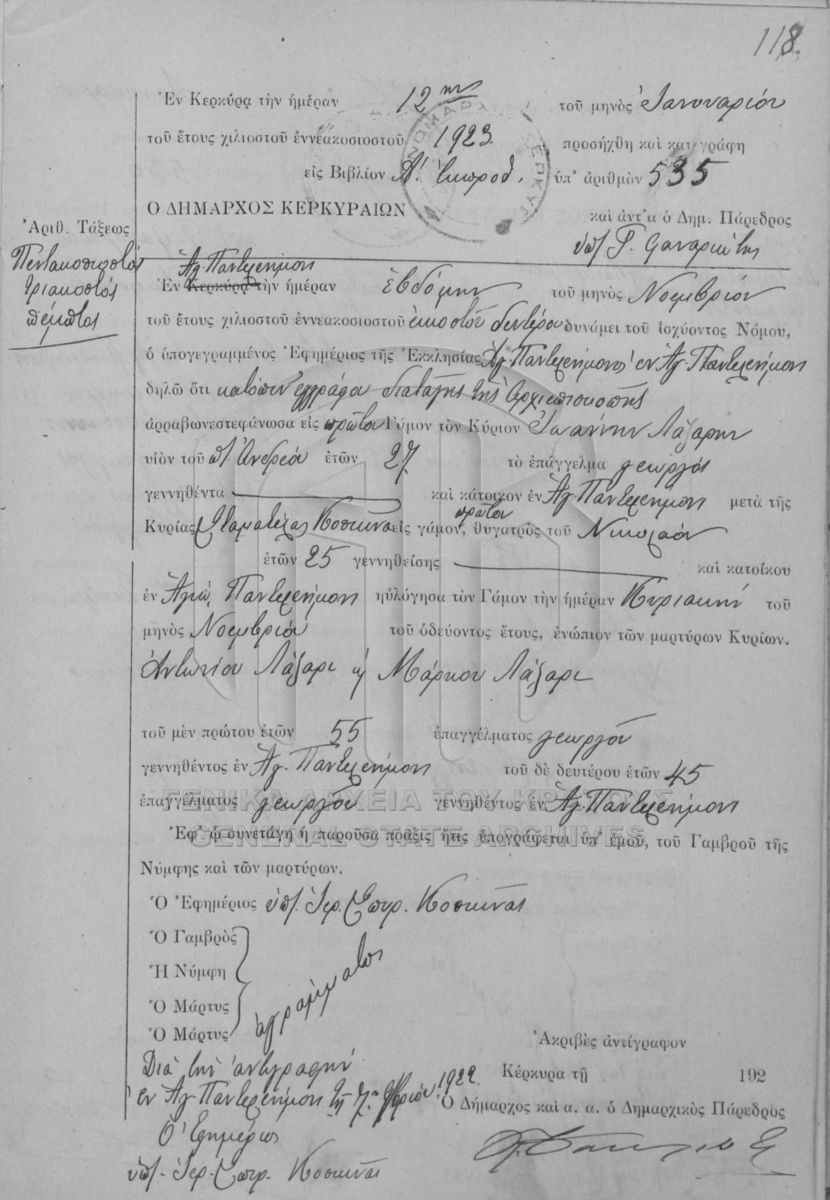 118.
Ἐν Κερκύρᾳ τὴν ἡμέραν 12ην τοῦ μηνὸς Ἰανουαρίου
τοῦ ἔτους χιλιοστοῦ ἐννεακοσιοστοῦ 1923 προσήχθη καὶ κατεγράφη
εἰς Βιβλίον Α΄. ἐκπροθ. ὑπ' ἀριθμὸν 535
Ο ΔΗΜΑΡΧΟΣ ΚΕΡΚΥΡΑΙΩΝ καὶ ἀντ' α ὁ Δημ. Πάρεδρος
ὑπ/
Ἀριθ. Τάξεως
Πεντακοσιοστός
τριακοστός
πέμπτος
Ἁγ. Παντελεήμονι
Ἐν Κερκύρᾳ τὴν ἡμέραν ἑβδόμην τοῦ μηνὸς Νοεμβρίου
τοῦ ἔτους χιλιοστοῦ ἐννεακοσιοστοῦ εἰκοστοῦ δευτέρου δυνάμει τοῦ ἰσχύοντος Νόμου,
ὁ ὑπογεγραμμένος Ἐφημέριος τῆς Ἐκκλησίας Ἁγ. Παντελεήμονος ἐν Ἁγ. Παντελεήμονι
δηλῶ ὅτι κατόπιν ἐγγράφου διαταγῆς τῆς Ἀρχιεπισκοπῆς
ἀρραβωνεστεφάνωσα εἰς πρῶτον Γάμον τὸν Κύριον Ἰωάννην Λάζαρην
υἱὸν τοῦ π/ Ἀνδρέα ἐτῶν 27 τὸ ἐπάγγελμα γεωργός
γεννηθέντα καὶ κάτοικον ἐν Ἁγ. Παντελεήμονι μετὰ τῆς
Κυρίας Σταματέλας Κοσκινᾶ εἰς πρῶτον γάμον, θυγατρὸς τοῦ Νικολάου
ἐτῶν 25 γεννηθείσης καὶ κατοίκου
ἐν Ἁγίῳ Παντελεήμονι ηὐλόγησα τὸν Γάμον τὴν ἡμέραν Κυριακήν τοῦ
μηνὸς Νοεμβρίου τοῦ ὁδεύοντος ἔτους, ἐνώπιον τῶν μαρτύρων Κυρίων.
Ἀντωνίου Λάζαρι ἢ Μάρκου Λάζαρι
τοῦ μὲν πρώτου ἐτῶν 55 ἐπαγγέλματος γεωργοῦ
γεννηθέντος ἐν Ἁγ. Παντελεήμονι τοῦ δὲ δευτέρου ἐτῶν 45
ἐπαγγέλματος γεωργοῦ γεννηθέντος ἐν Ἁγ. Παντελεήμονι
ΓΕΝΙΚΑ ΑΡΧΕΙΑ ΤΟΥ ΚΡΑΤΟΥΣ
GENERAL STATE ARCHIVES
Ἐφ' ᾧ συνετάγη ἡ παροῦσα πρᾶξις ἥτις ὑπογράφεται ὑπ' ἐμοῦ, τοῦ Γαμβροῦ τῆς
Νύμφης καὶ τῶν μαρτύρων.
Ὁ Ἐφημέριος ὑπ/ Ἱερ. Σπυρ. Κοσκινᾶς
Ὁ Γαμβρὸς
Ἡ Νύμφη
Ὁ Μάρτυς
Ὁ Μάρτυς
ἀγράμματοι
Ἀκριβὲς ἀντίγραφον
Διὰ τὴν ἀντιγραφήν
Κέρκυρα τῇ 192
ἐν Ἁγ. Παντελεήμονι τῇ 7 9βρίου 1922
Ὁ Δήμαρχος καὶ α. α. ὁ Δημαρχικὸς Πάρεδρος
Ὁ Ἐφημέριος
ὑπ/ Ἱερ. Σπυρ. Κοσκινᾶς